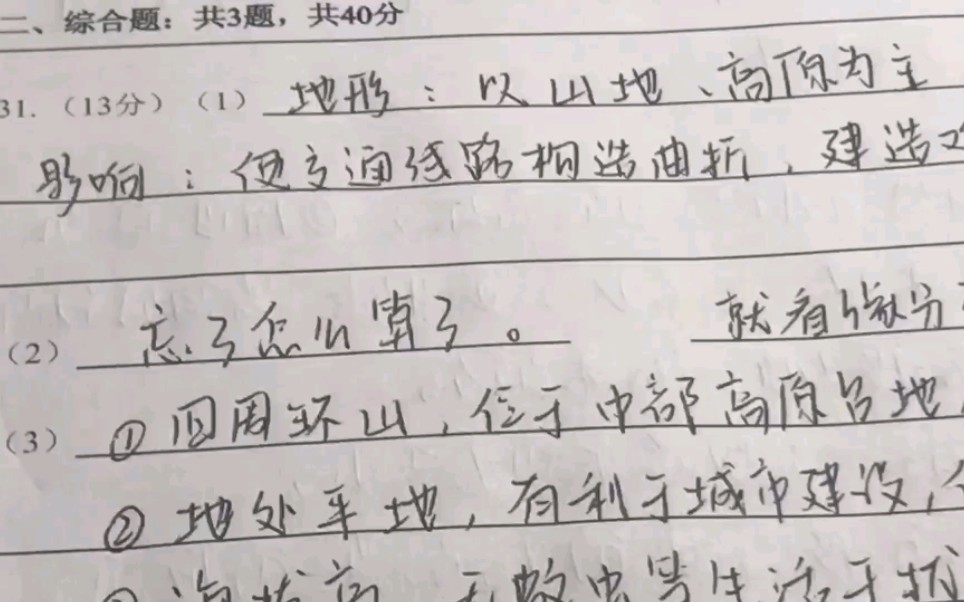 二、综合题：共3题，共40分
31.（13分）（1）地形：以山地、高原为主
影响：使交通线路构造曲折，建造
（2）忘了怎么算了。 就看缘分
（3）①四周环山，位于中部高原台地
②地处平地，有利于城市建设，
海拔高，无蚊虫等生活干扰